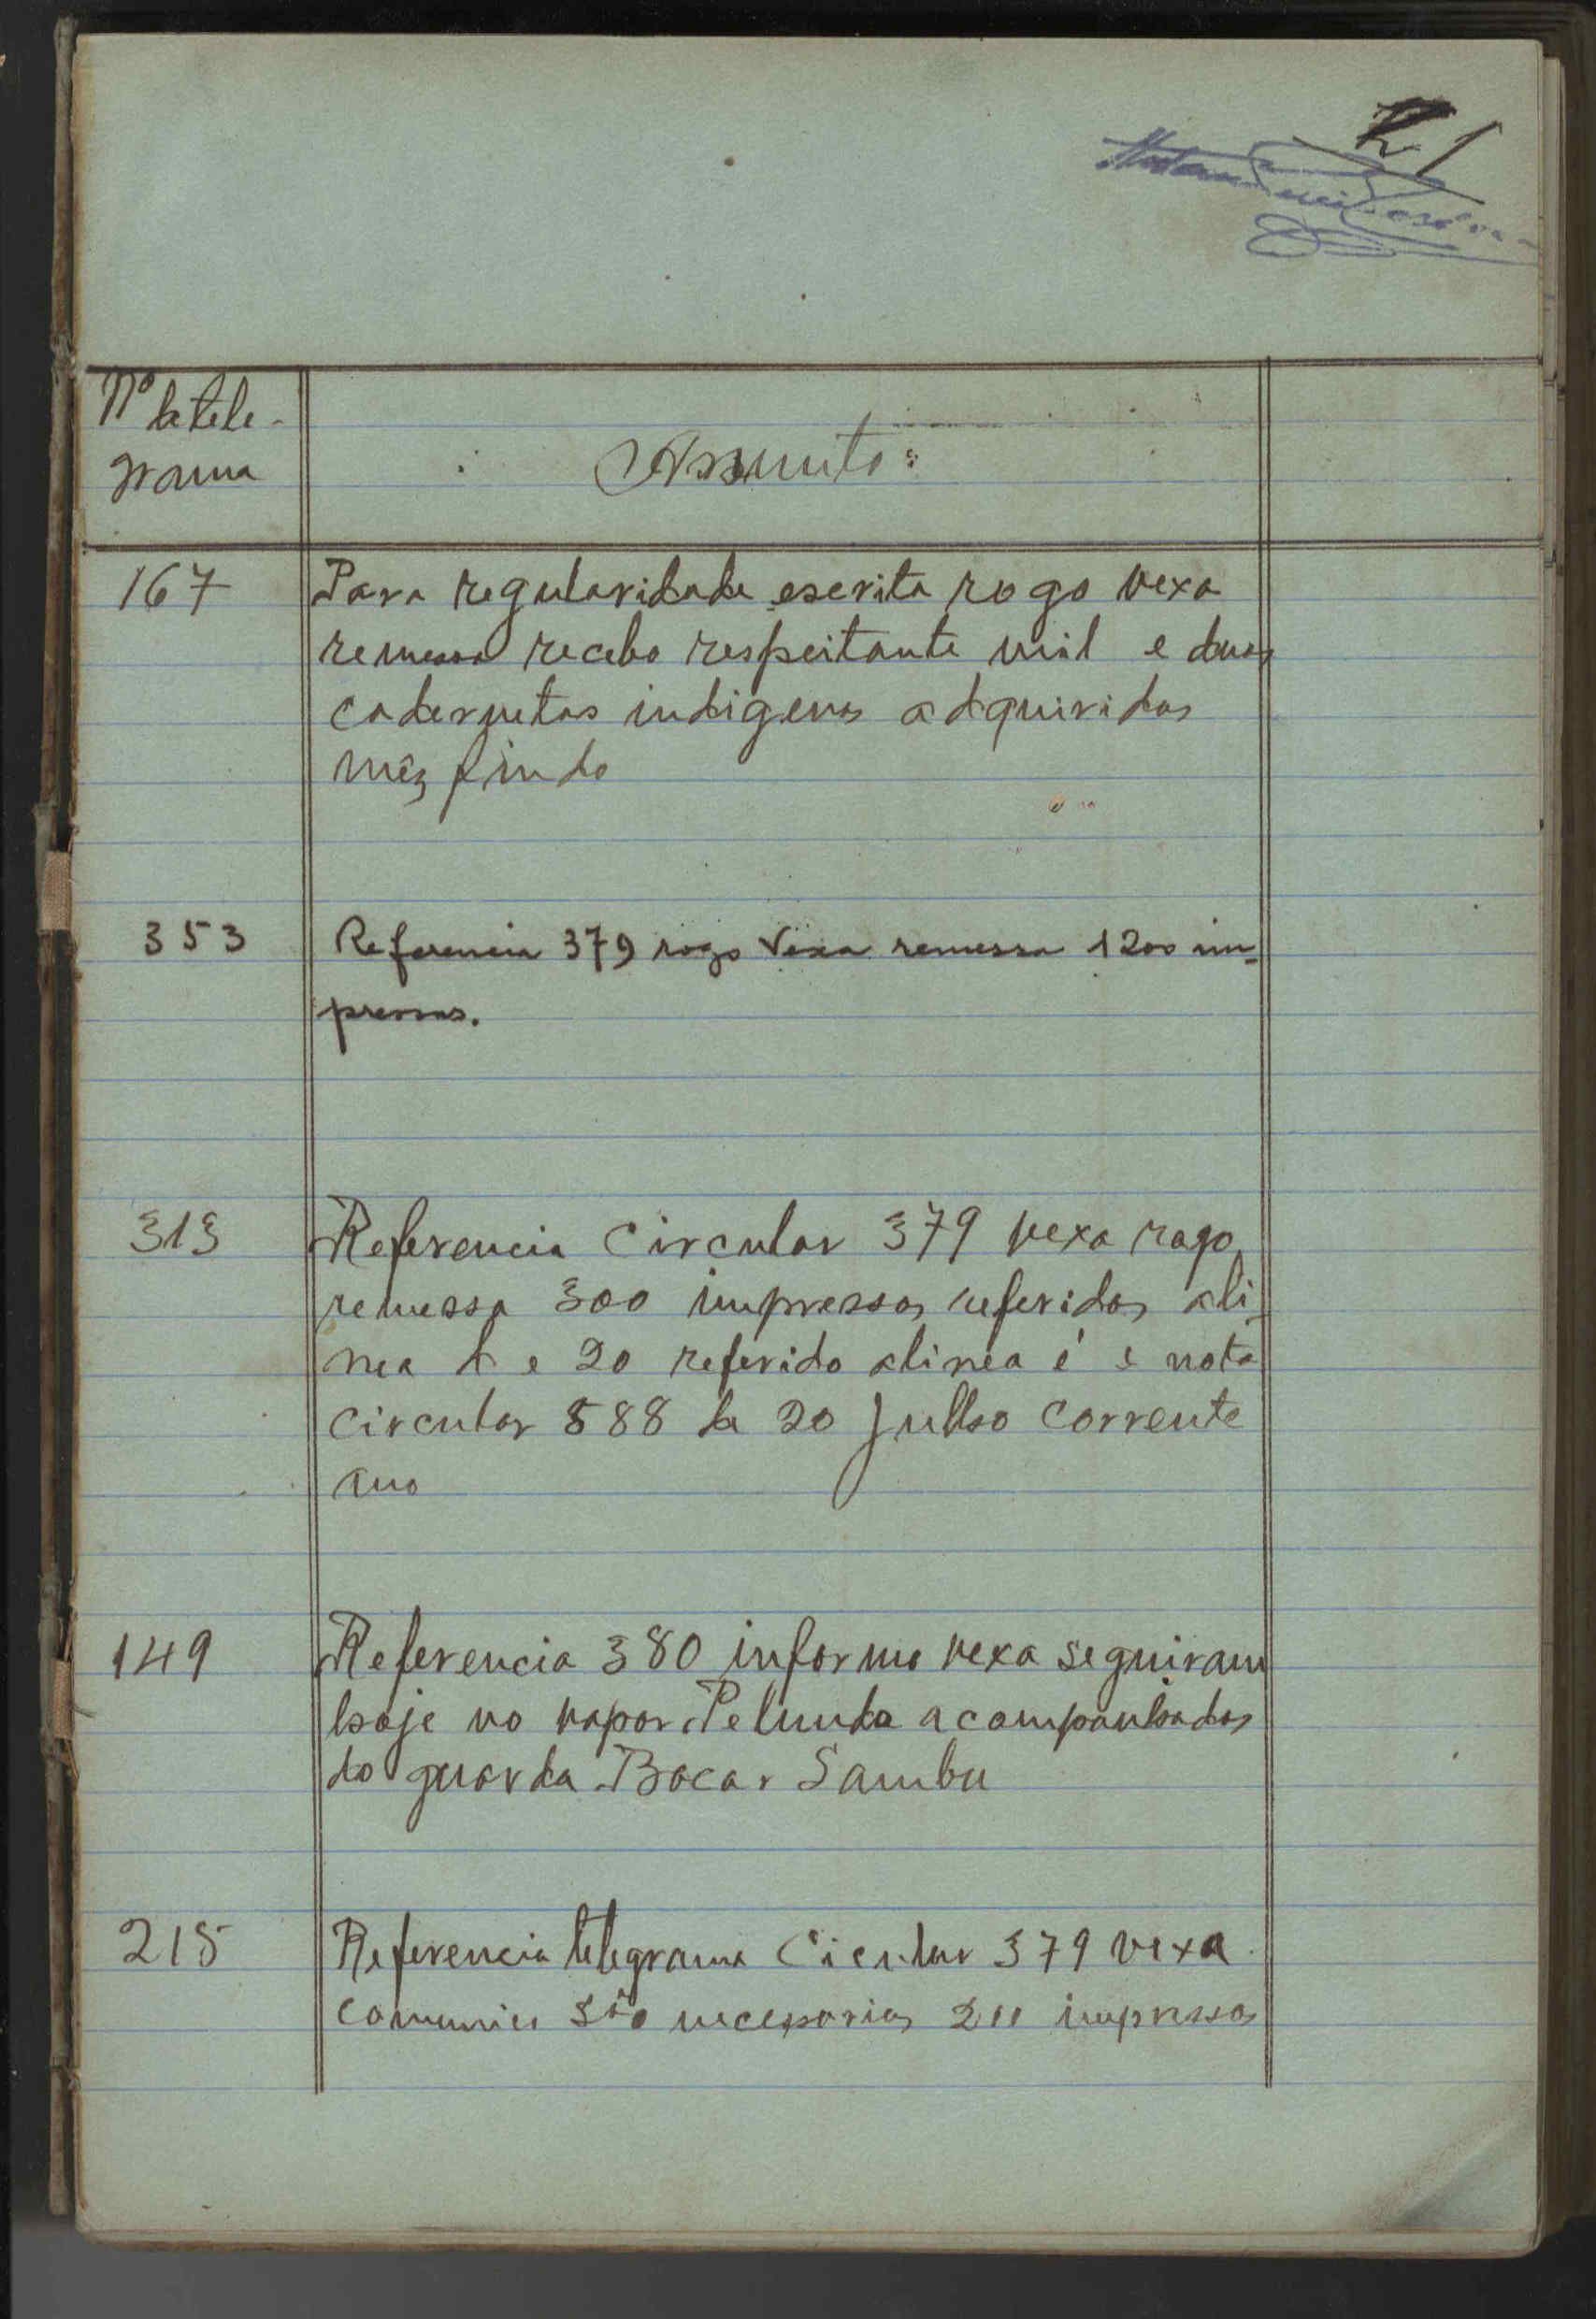 21
Nº de tele-
grama
Assunto:
167 Para regularidade escrita rogo vexa
remessa recebo respeitante mil e duas
cadernetas indigenas adquiridas
mêz findo
353 Referencia 379 rogo Vexa remessa 1200 im-
pressos.
313 Referencia Circular 379 vexa rogo
remessa 300 impressos referidos ali-
nea e 20 referido alinea é e nota
Circular 588 de 20 Julho corrente
ano
149 Referencia 380 informo vexa seguiram
hoje no vapor Pelunda acompanhados
do guarda Bacar Sambu
215 Referencia telegrama Circular 379 vexa
comunico são necessarios 200 impressos